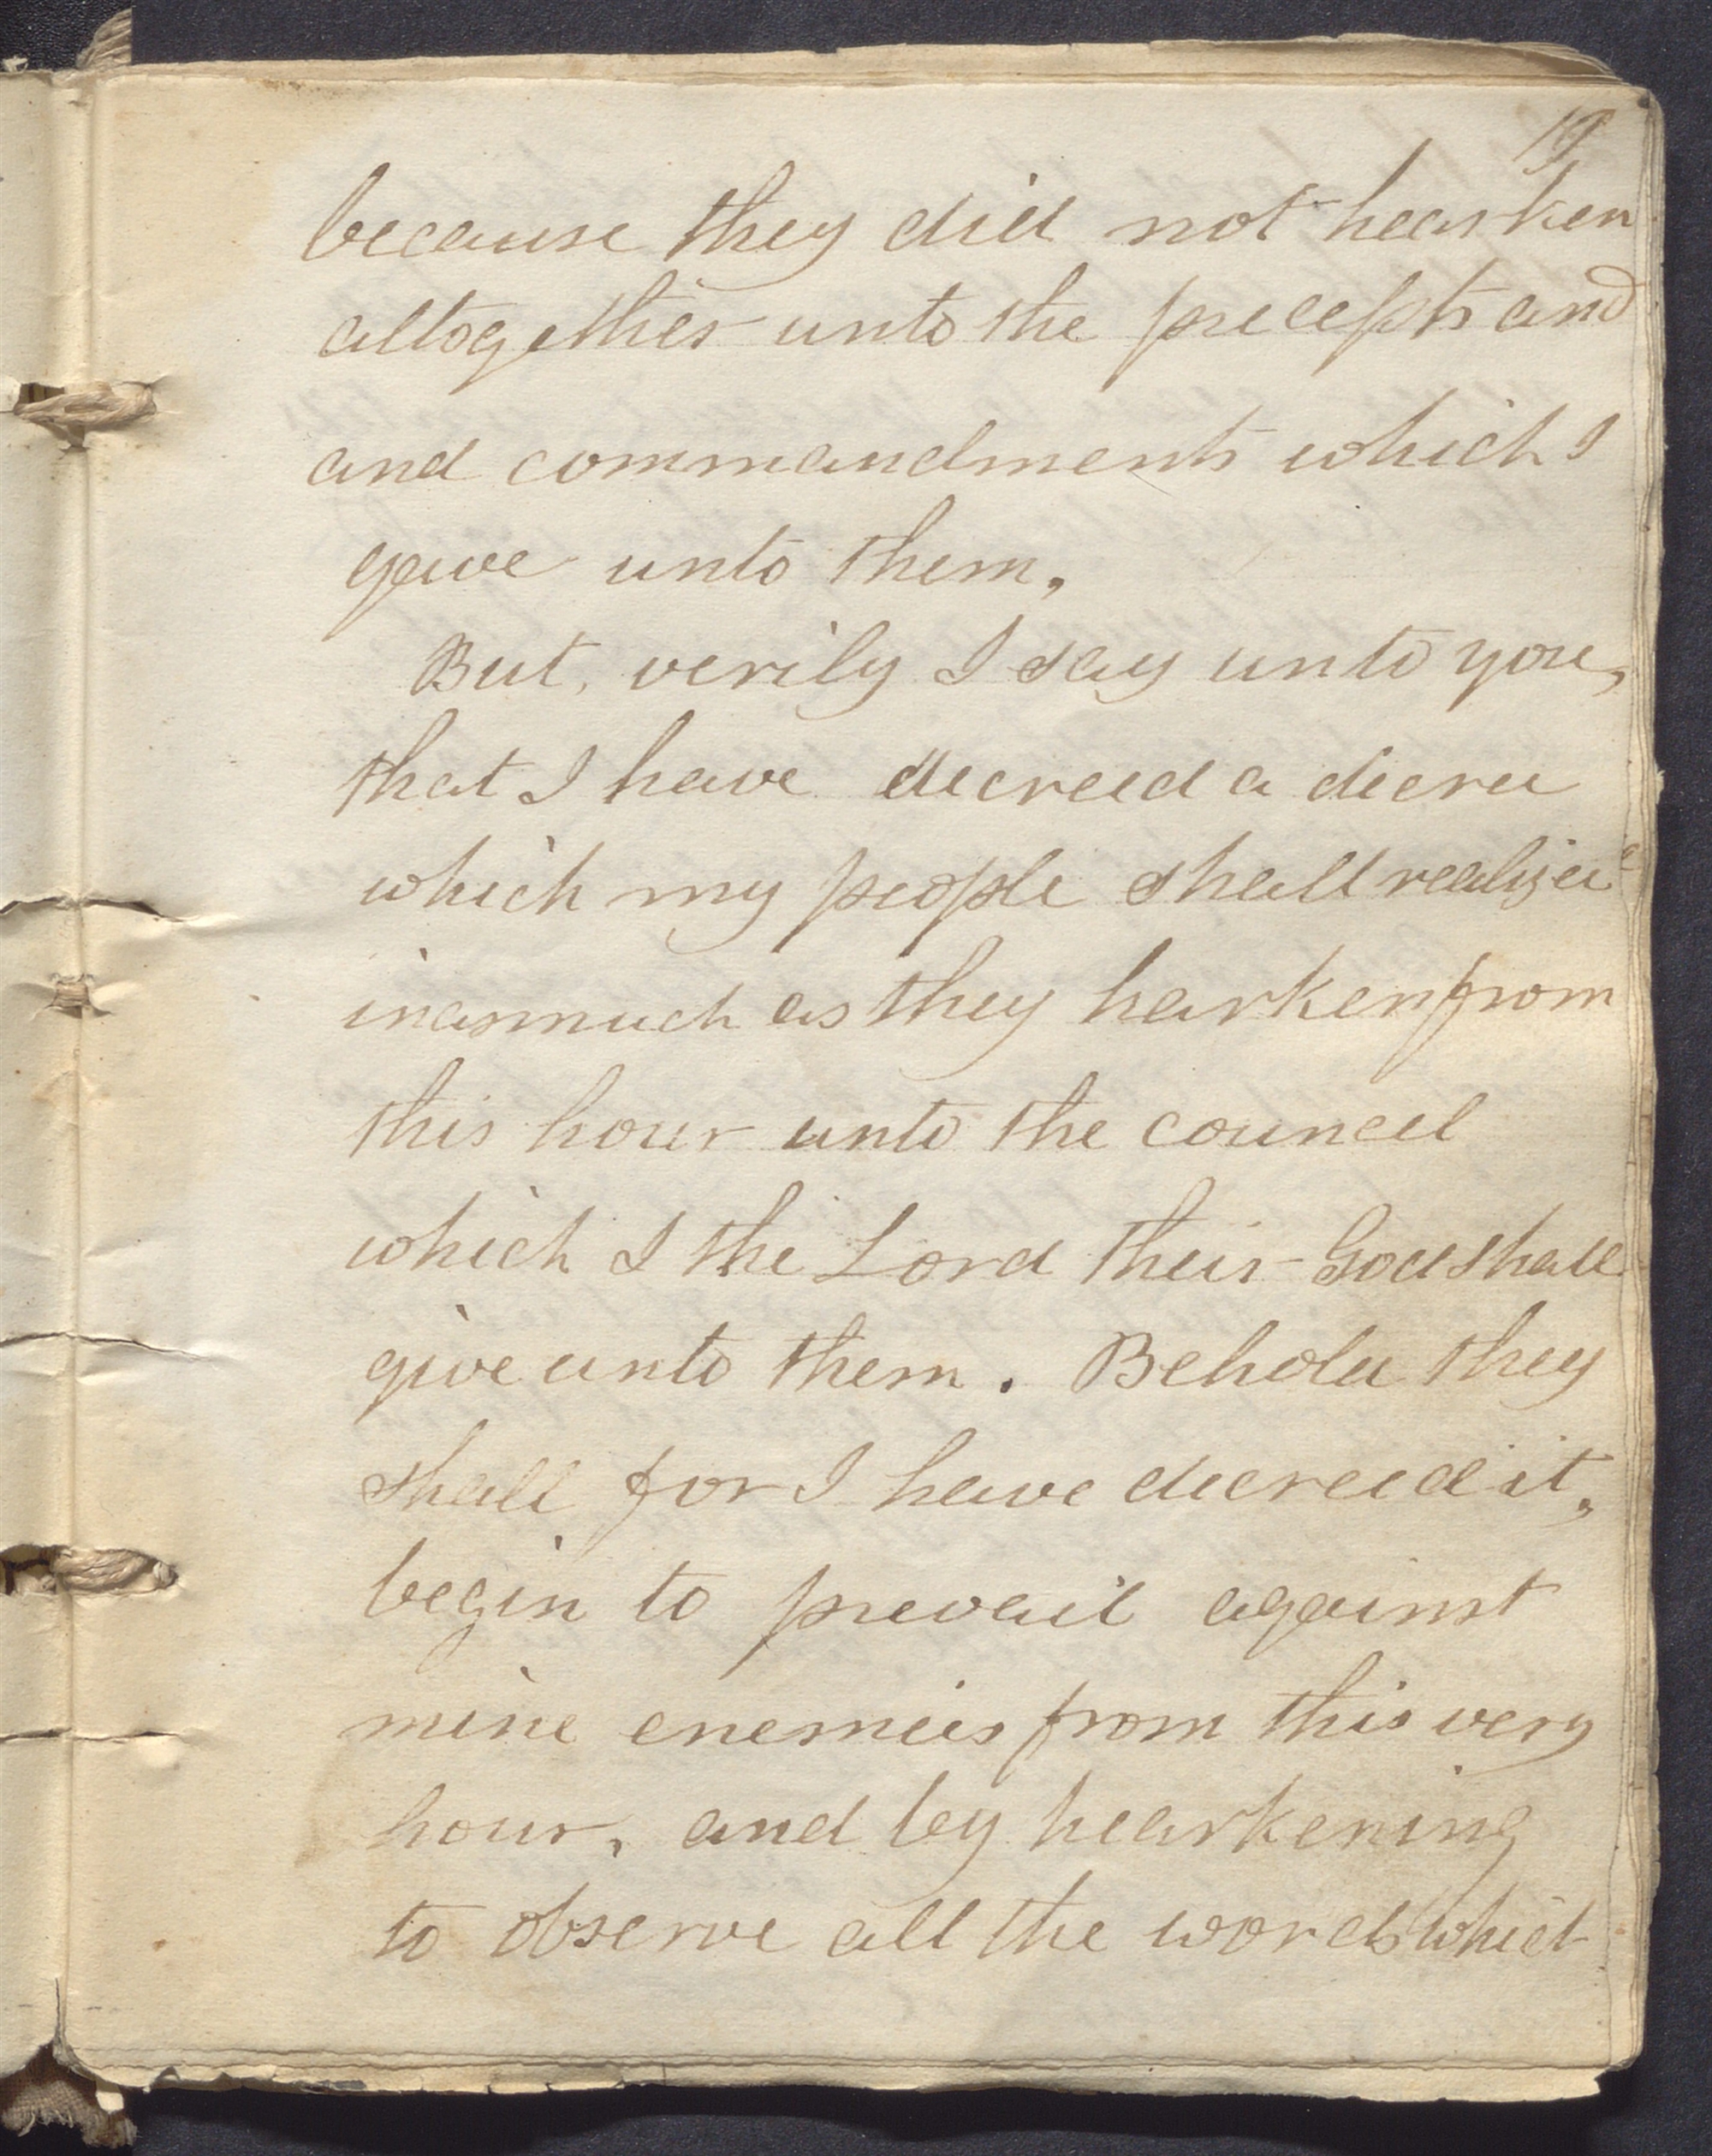 19
because they did not hearken
altogether unto the precepts and
and commandments which I
gave unto them.
But, verily I say unto you,
that I have decreed a decree
which my people shall realize
inasmuch as they harken from
this hour unto the councel
which I the Lord their God shall
give unto them. Behold they
shall for I have decreed it,
begin to prevail against
mine enemies from this very
hour, and by hearkening
to observe all the words which